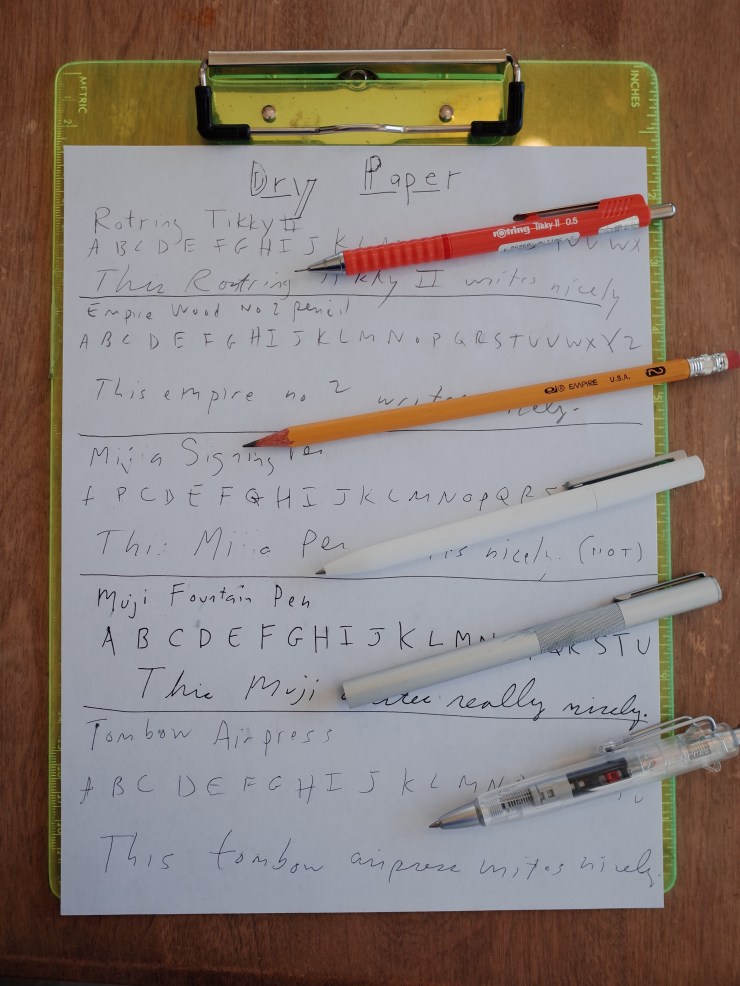 METRIC
INCHES
Dry Paper
Rotring Tikky II
A B C D E F G H I J K L M U V W X
rotring Tikky II 0.5
This Rotring Tikky II writes nicely
Empire Wood No 2 pencil
A B C D E F G H I J K L M N O P Q R S T U V W X Y Z
EMPIRE U.S.A. 2
This empire no 2 writes nicely.
Mijia Signing Pen
A B C D E F G H I J K L M N O P Q R
This Mijia Pen nicely. (NOT)
Muji Fountain Pen
A B C D E F G H I J K L M N Q R S T U
This Muji writes really nicely.
Tombow Airpress
A B C D E F G H I J K L M N
This tombow airpress writes nicely.